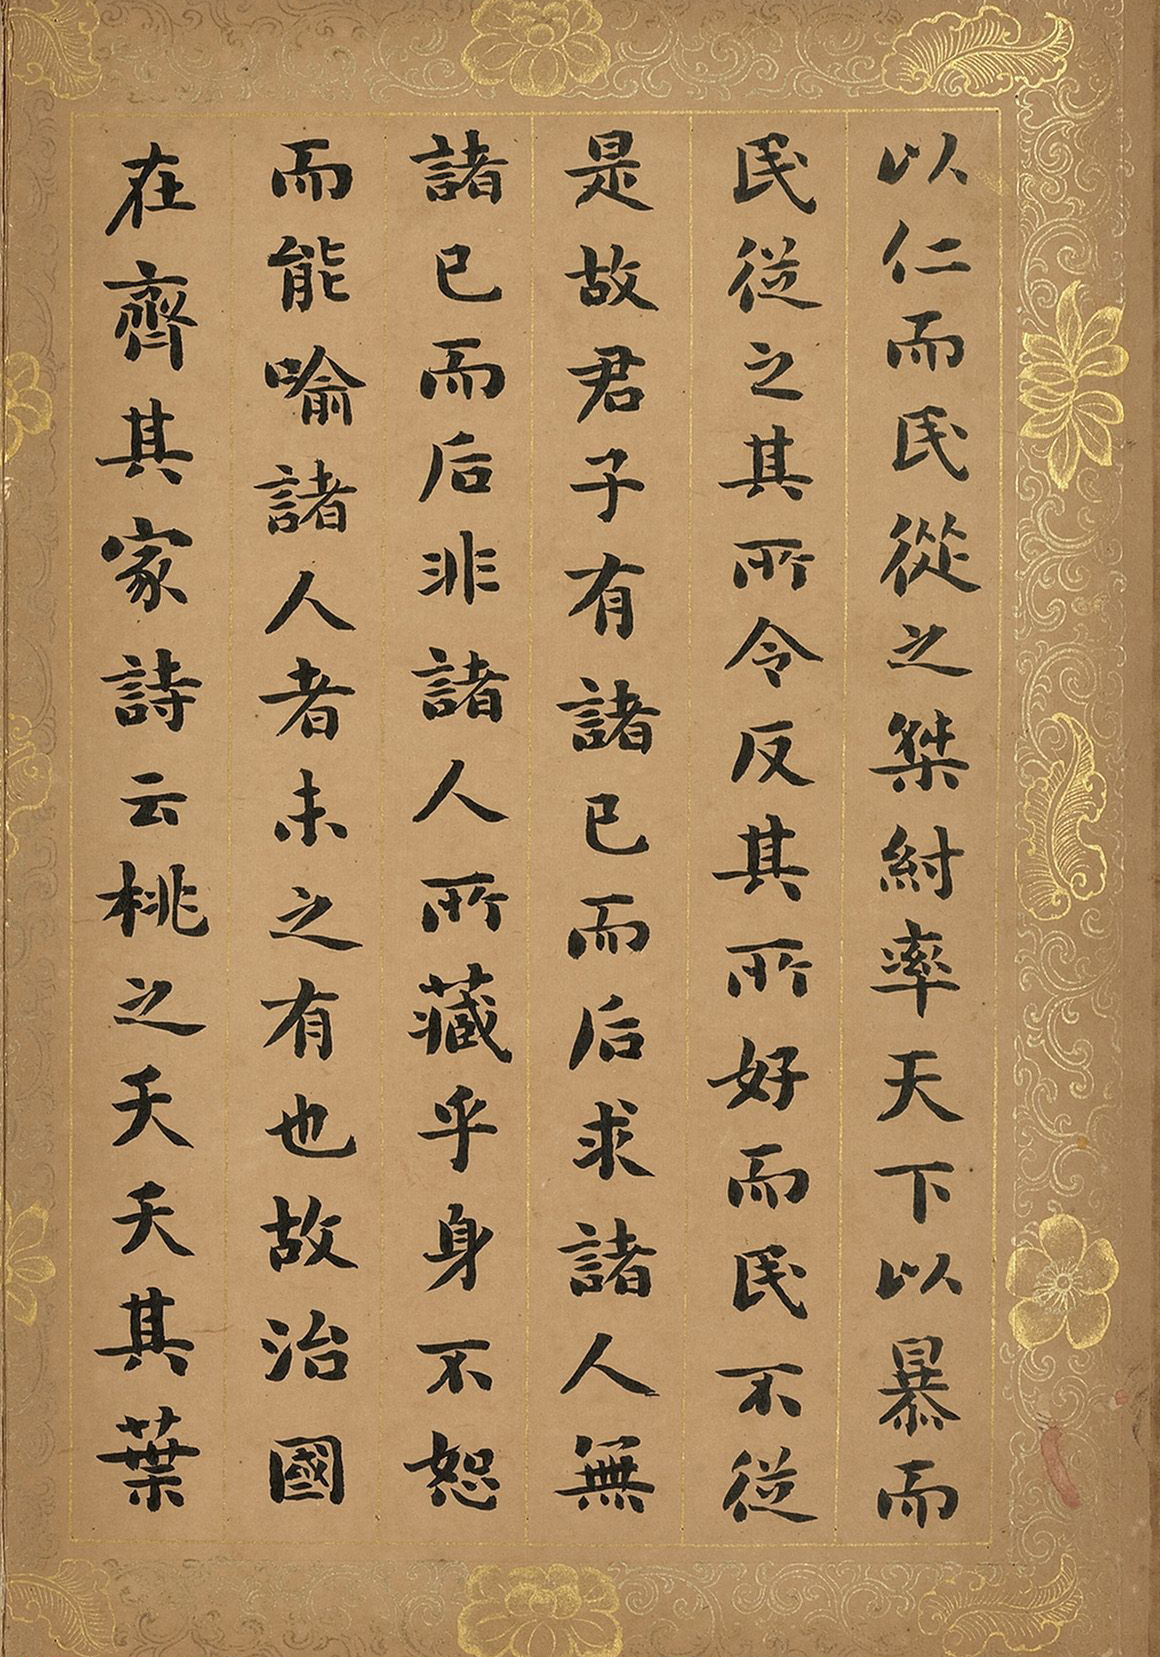 以仁而民從之桀紂率天下以暴而
民從之其所令反其所好而民不從
是故君子有諸己而后求諸人無
諸己而后非諸人所藏乎身不恕
而能喻諸人者未之有也故治國
在齊其家詩云桃之夭夭其葉